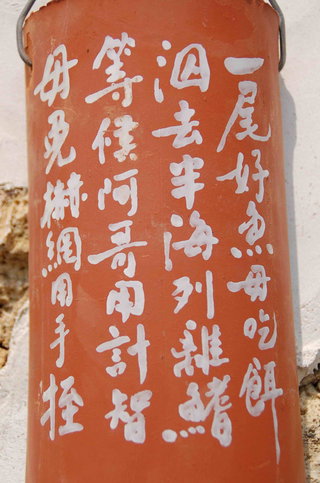 一尾好魚毋吃餌
泅去半海列離鰭
等候阿哥用計智
毋免網用手